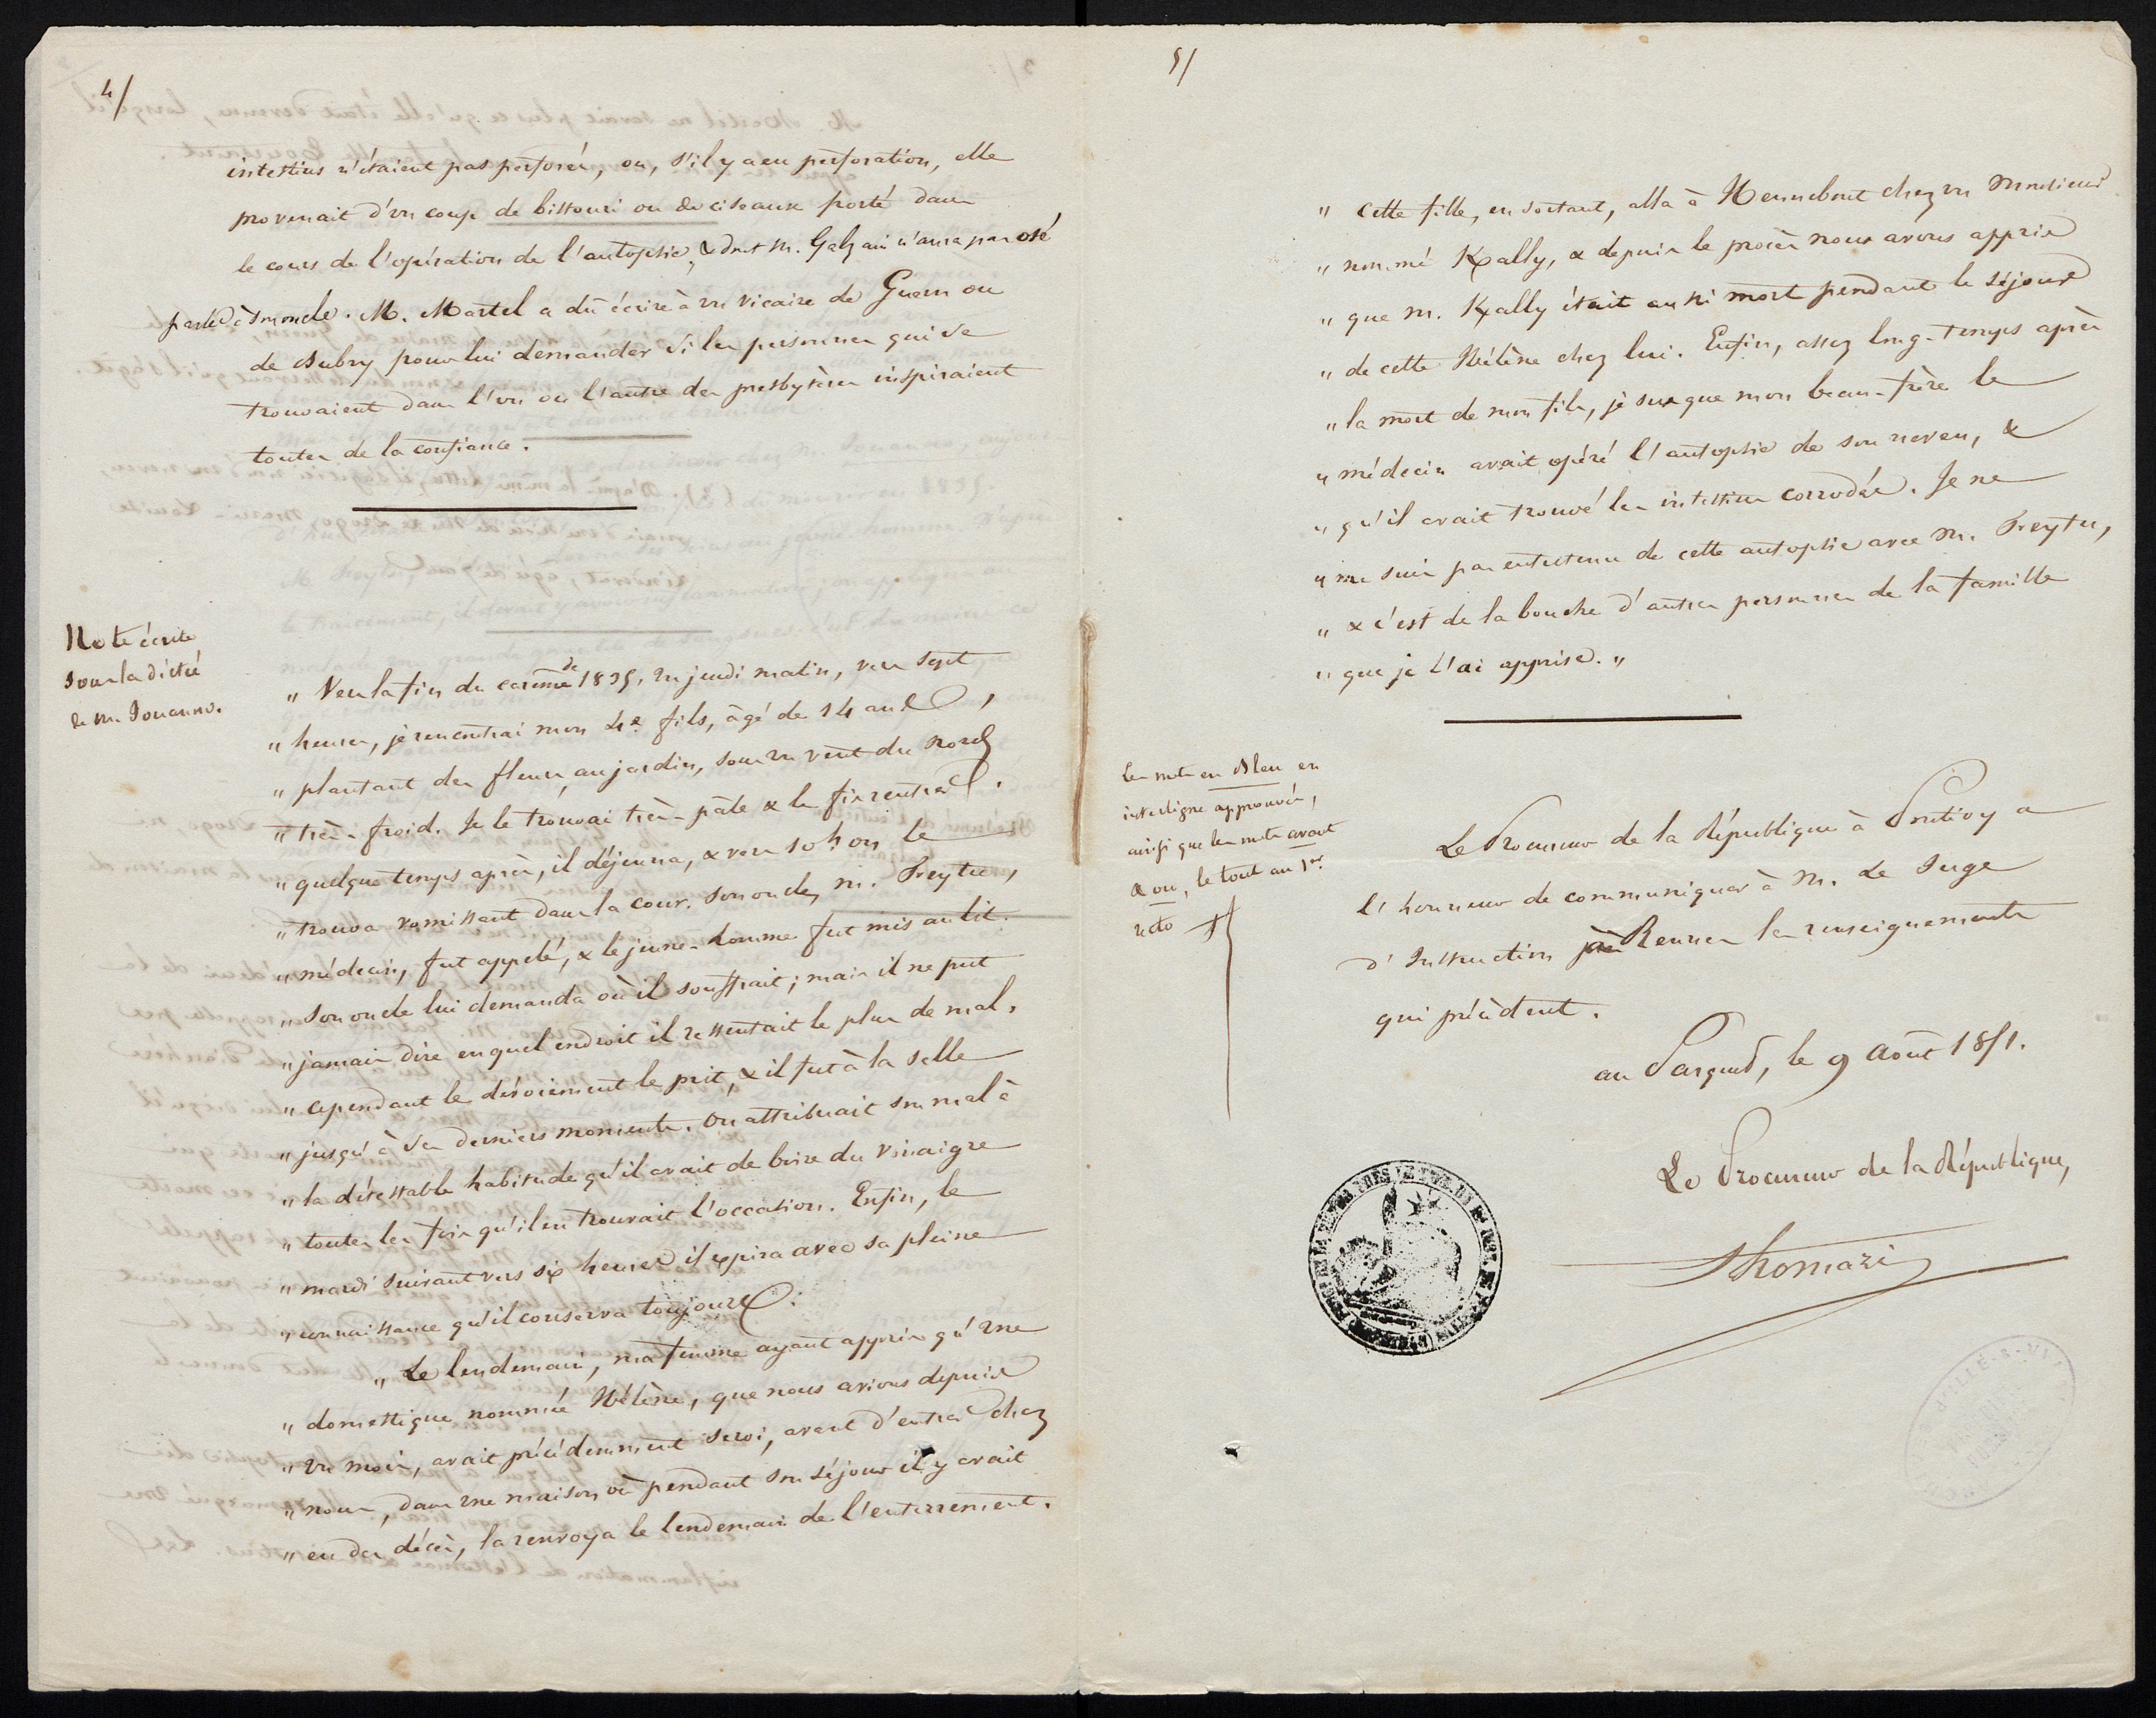 4/
intestins n'étaient pas perforés, ou, s'il y a eu perforation, elle
provenait d'un coup de bistouri ou de ciseaux porté dans
le cours de l'opération de l'autopsie, & dont M. Galzain n'aura pas osé
parler à tout le monde. M. Martel a dû écrire à un vicaire de Guern ou
de Bubry pour lui demander si les personnes qui se
trouvaient dans l'un ou l'autre des presbytères inspiraient
toutes de la confiance.
Note écrite
sous la dictée
de M. Jouanno.
" Vers la fin du carême de 1835, un jeudi matin, vers sept
" heures, je rencontrai mon 4e fils, âgé de 14 ans,
" plantant des fleurs au jardin, sous un vent du nord
" très-froid. Je le trouvai très-pâle & le fis rentrer.
" quelque temps après, il déjeuna, & vers 10 h. on le
" trouva vomissant dans la cour. Son oncle, M. Preytu,
" médecin, fut appelé, & le jeune-homme fut mis au lit.
" Son oncle lui demanda où il souffrait; mais il ne put
" jamais dire en quel endroit il ressentait le plus de mal.
" cependant le dévoiement le prit, & il fut à la selle
" jusqu'à ses derniers moments. On attribuait son mal à
" la détestable habitude qu'il avait de boire du vinaigre
" toutes les fois qu'il en trouvait l'occasion. Enfin, le
" mardi suivant vers six heures il expira avec sa pleine
" connaissance qu'il conserva toujours.
" Le lendemain, ma femme ayant appris qu'une
" domestique nommée Hélène, que nous avions depuis
" un mois, avait précédemment servi, avant d'entrer chez
" nous, dans une maison où pendant son séjour il y avait
" eu des décès, la renvoya le lendemain de l'enterrement.
5/
" Cette fille, en sortant, alla à Hennebont chez un monsieur
" nommé Kally, & depuis le procès nous avons appris
" que M. Kally était aussi mort pendant le séjour
" de cette Hélène chez lui. Enfin, assez long-temps après
" la mort de mon fils, je sus que mon beau-frère le
" médecin avait opéré l'autopsie de son neveu, &
" qu'il avait trouvé les intestins corrodés. Je ne
" me suis pas entretenu de cette autopsie avec M. Preytu,
" & c'est de la bouche d'autres personnes de la famille
" que je l'ai apprise. "
Les mots en bleu en
interligne approuvés,
ainsi que les mots avant
& ou, le tout au 1er
recto
Le Procureur de la République à Pontivy a
l'honneur de communiquer à M. Le Juge
d'Instruction à Rennes les renseignements
qui précèdent.
au Parquet, le 9 août 1851.
Le Procureur de la République,